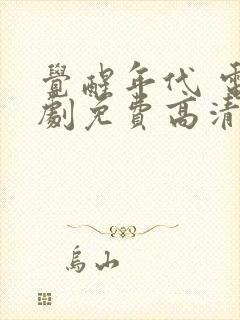 覺醒年代 電
劇免費高清
烏山